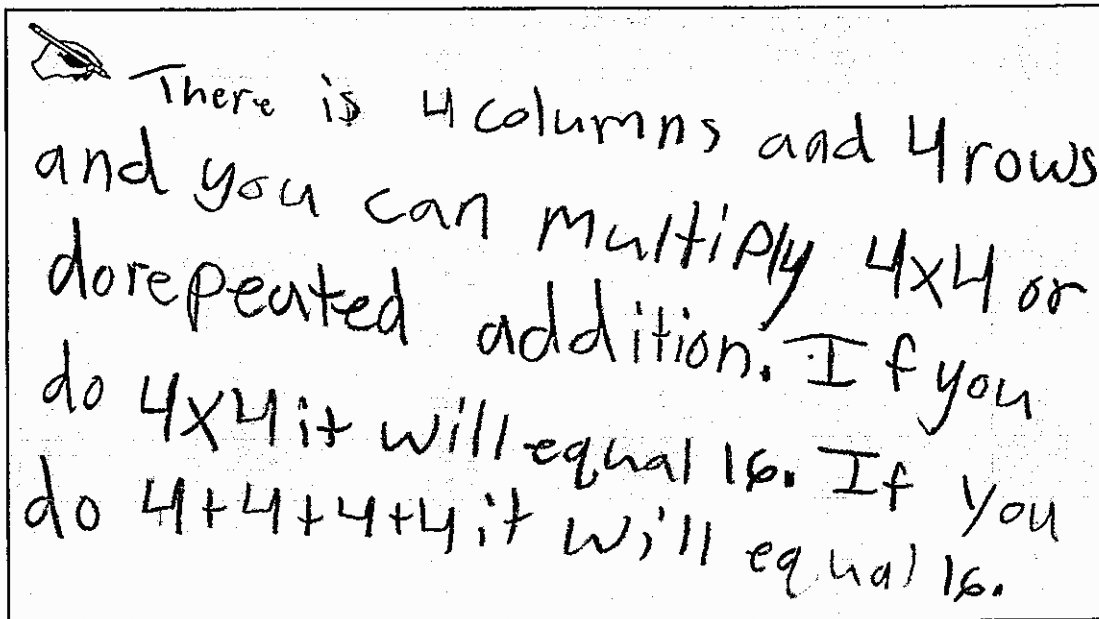 There is 4 columns and 4 rows
and you can multiply 4x4 or
do repeated addition. If you
do 4x4 it will equal 16. If you
do 4+4+4+4 it will equal 16.